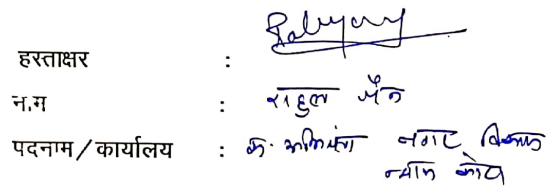 हस्ताक्षर :
न.म : राहुल जैन
पदनाम/कार्यालय : क. अभियंता नगर विकास
न्यास कोटा